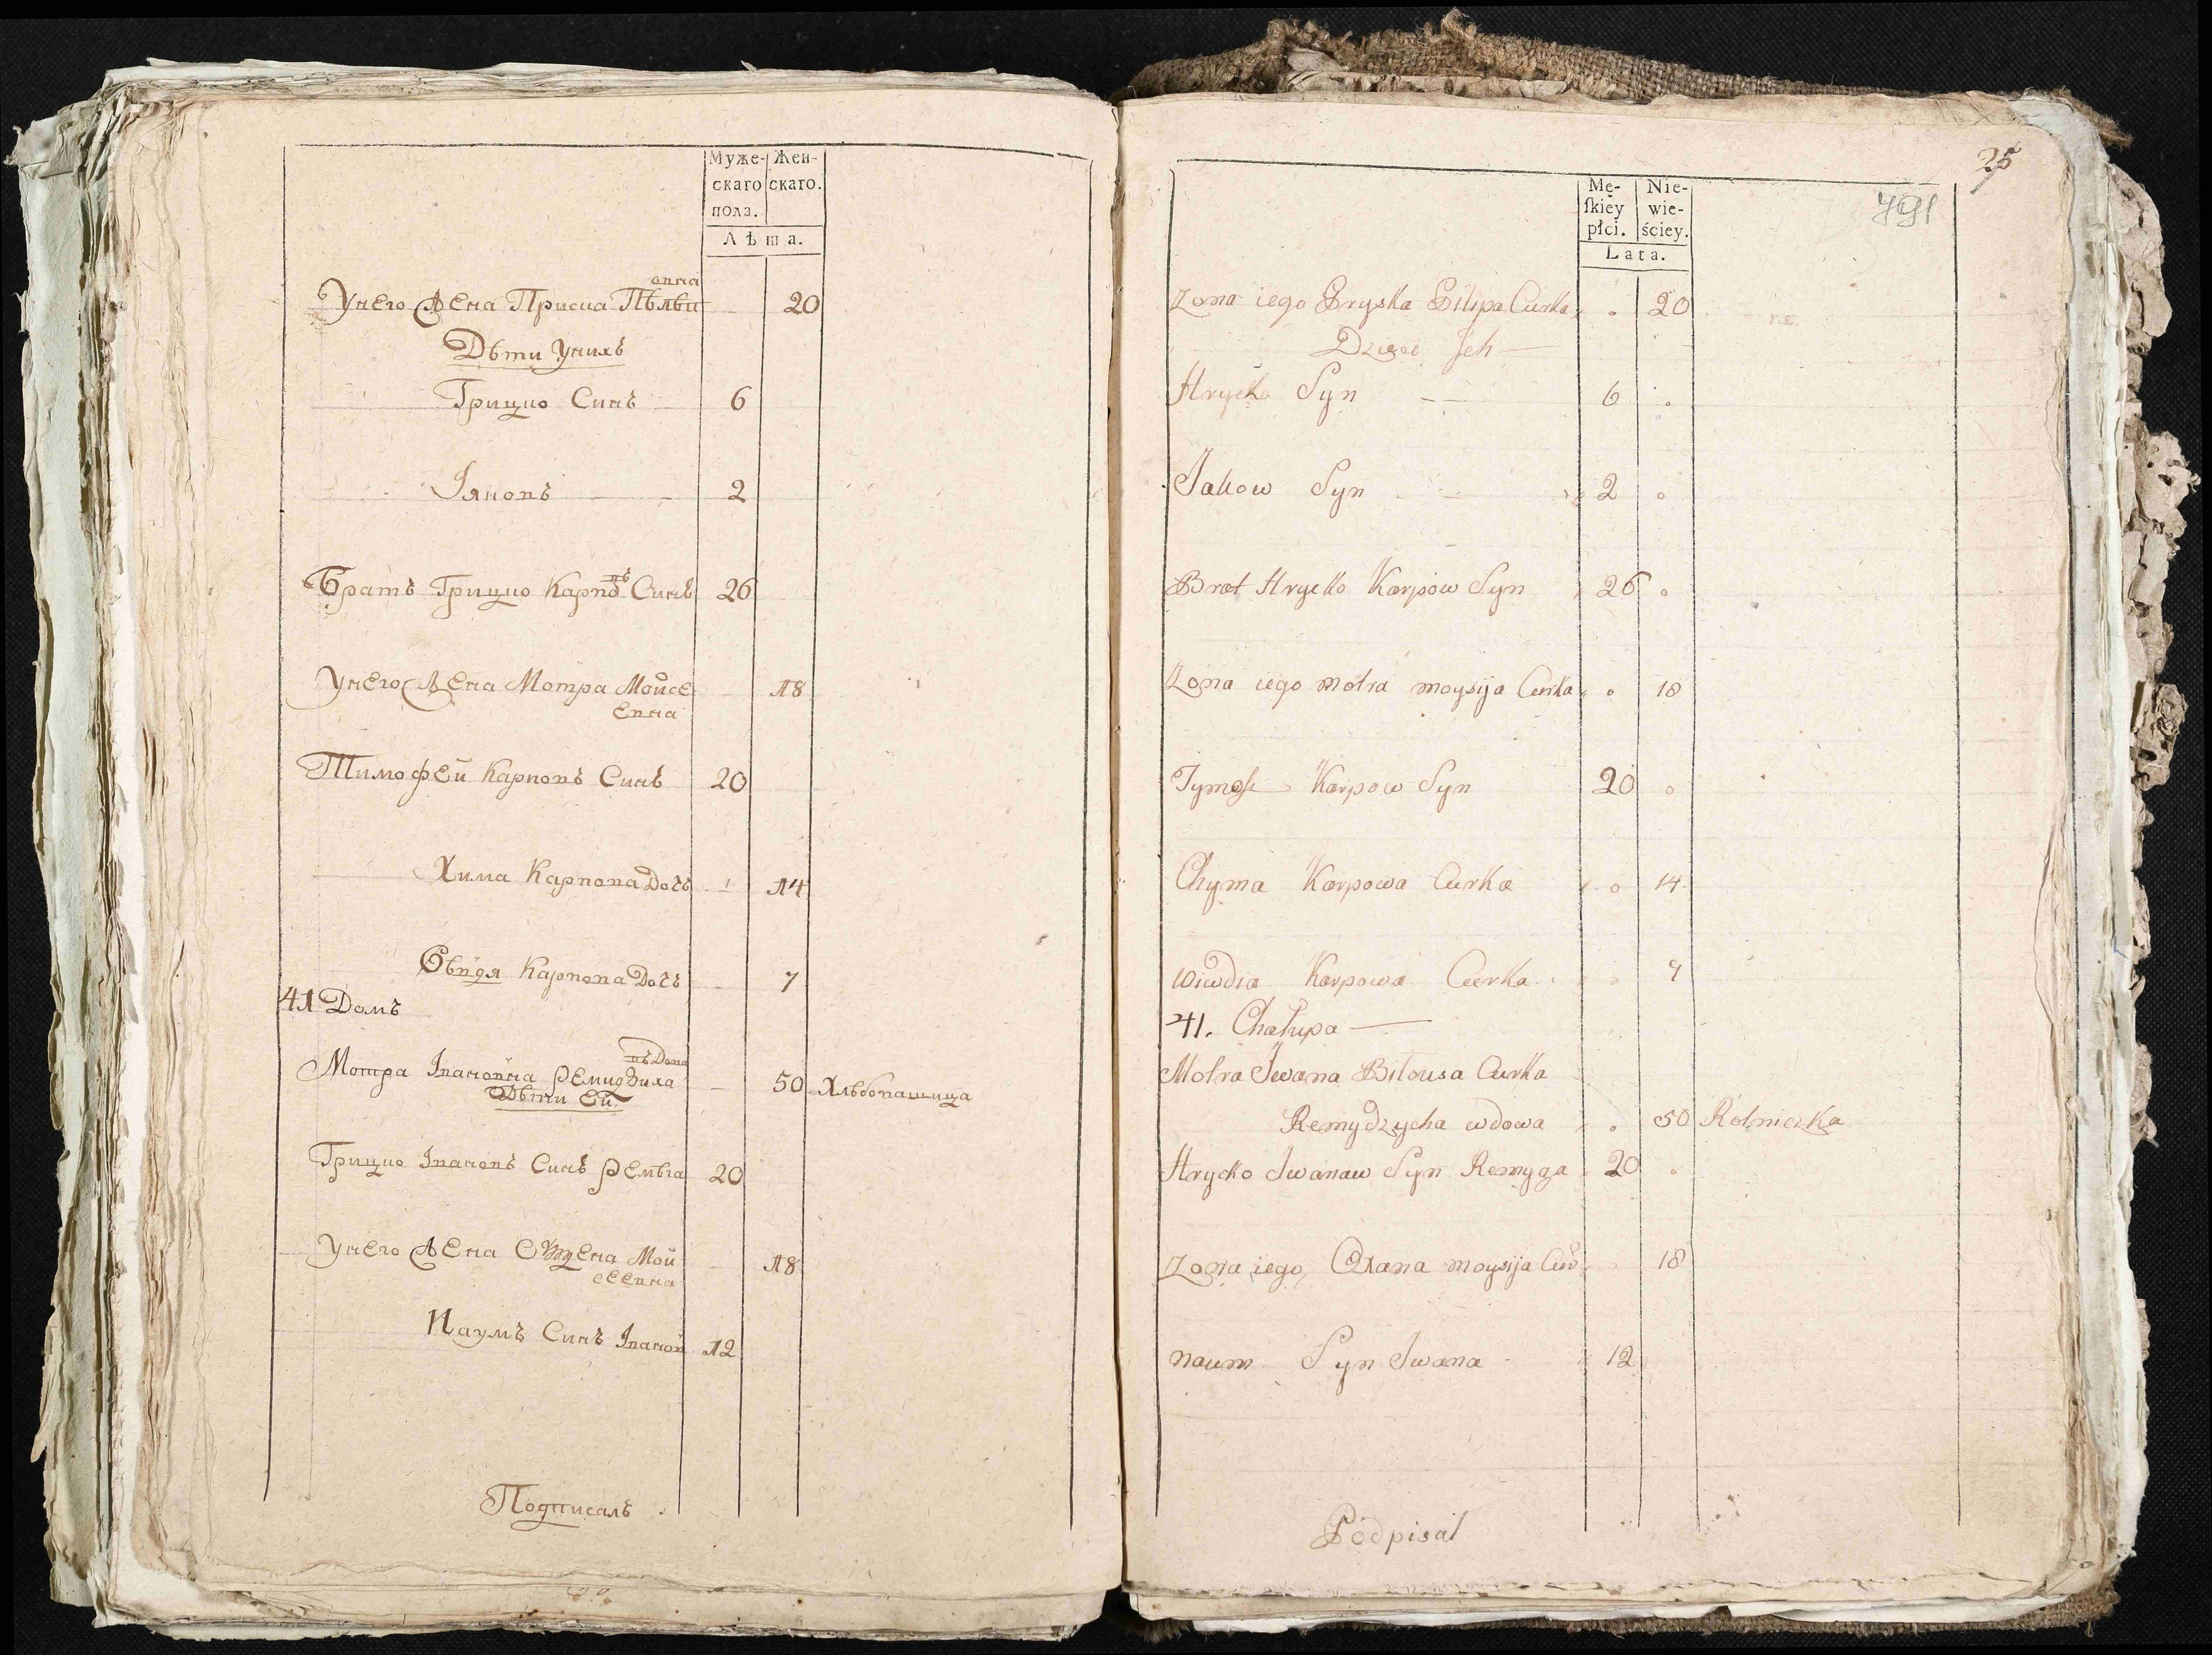 Муже- Жен-
скаго скаго.
пола.
Лѣта.
Унего Жена Приска Пѣлѣп
овна 20
Дѣти Унихъ
Грицко Синъ 6
Іяковъ 2
Братъ Грицко Карповъ Синъ 26
Унего Жена Мотра Мойсе
евна 18
Тимофей Карповъ Синъ 20
Хима Карпова Дочь 14
Оввдя Карпова Дочь 7
41 Домъ
Мотра Івановна Ремидзиха
вѣДова 50 Хлѣбопашица
Дѣти Ей.
Грицко Івановъ Синъ Ремѣга 20
Унего Жена Мой
сеевна 18
Наумъ Синъ Іванов 12
Подписалъ
25
791
Mę- Nie-
ſkiey wie-
płci. ściey.
Lata.
Zona iego Pryska Pilipa Curka 20
Dzieci Jch
Hrycko Syn 6
Jakow Syn 2
Brat Hrycko Karpow Syn 26
Zona iego Motra Moysija Curka 18
Tymosz Karpow Syn 20
Chyma Karpowa Curka 14
Wiwdia Karpowa Curka 7
41. Chałupa
Motra Jwana Biłousa Curka
Remydzycha wdowa 50 Rolniczka
Hrycko Jwanaw Syn Remyga 20
Zona iego Oxana Moysija Cur 18
Naum Syn Jwana 12
Podpisał